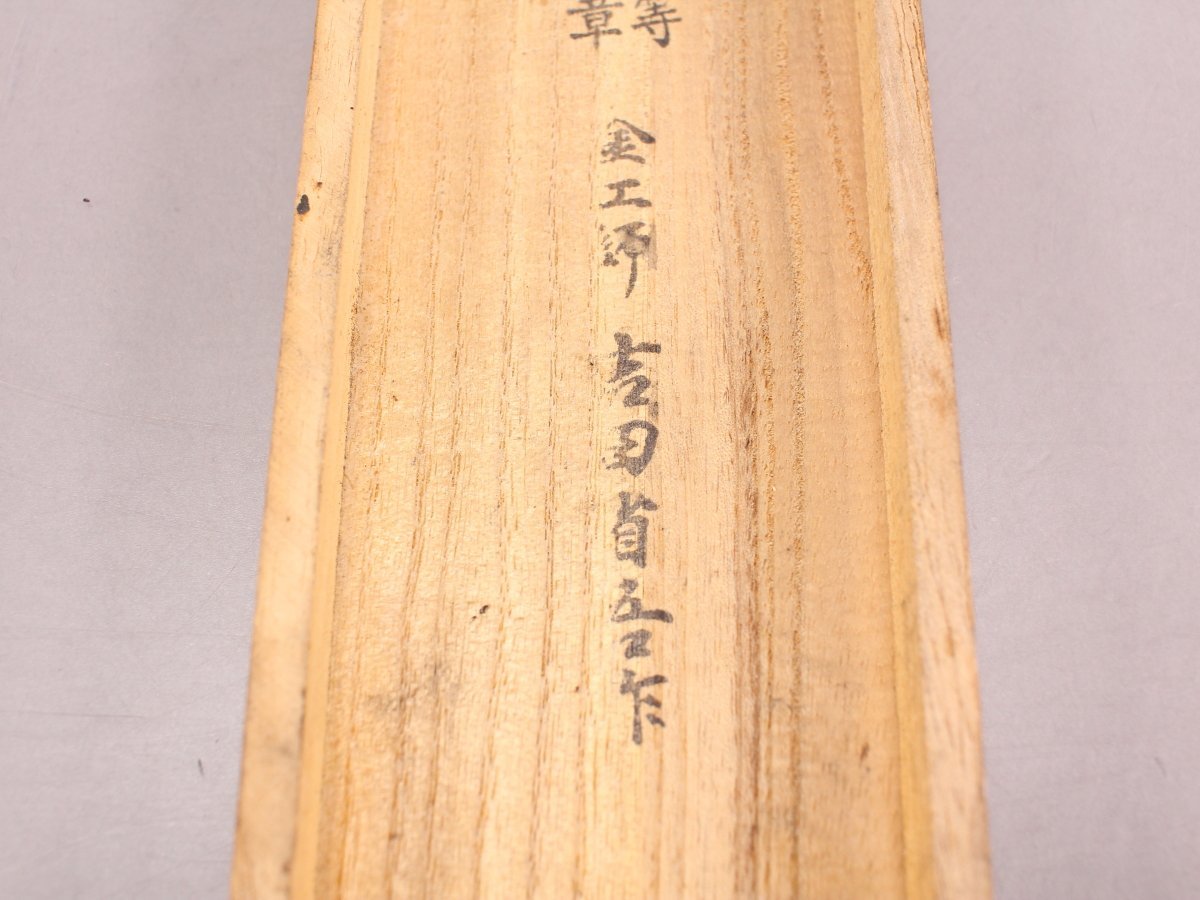 等
章
金工師 吉田貞吉作